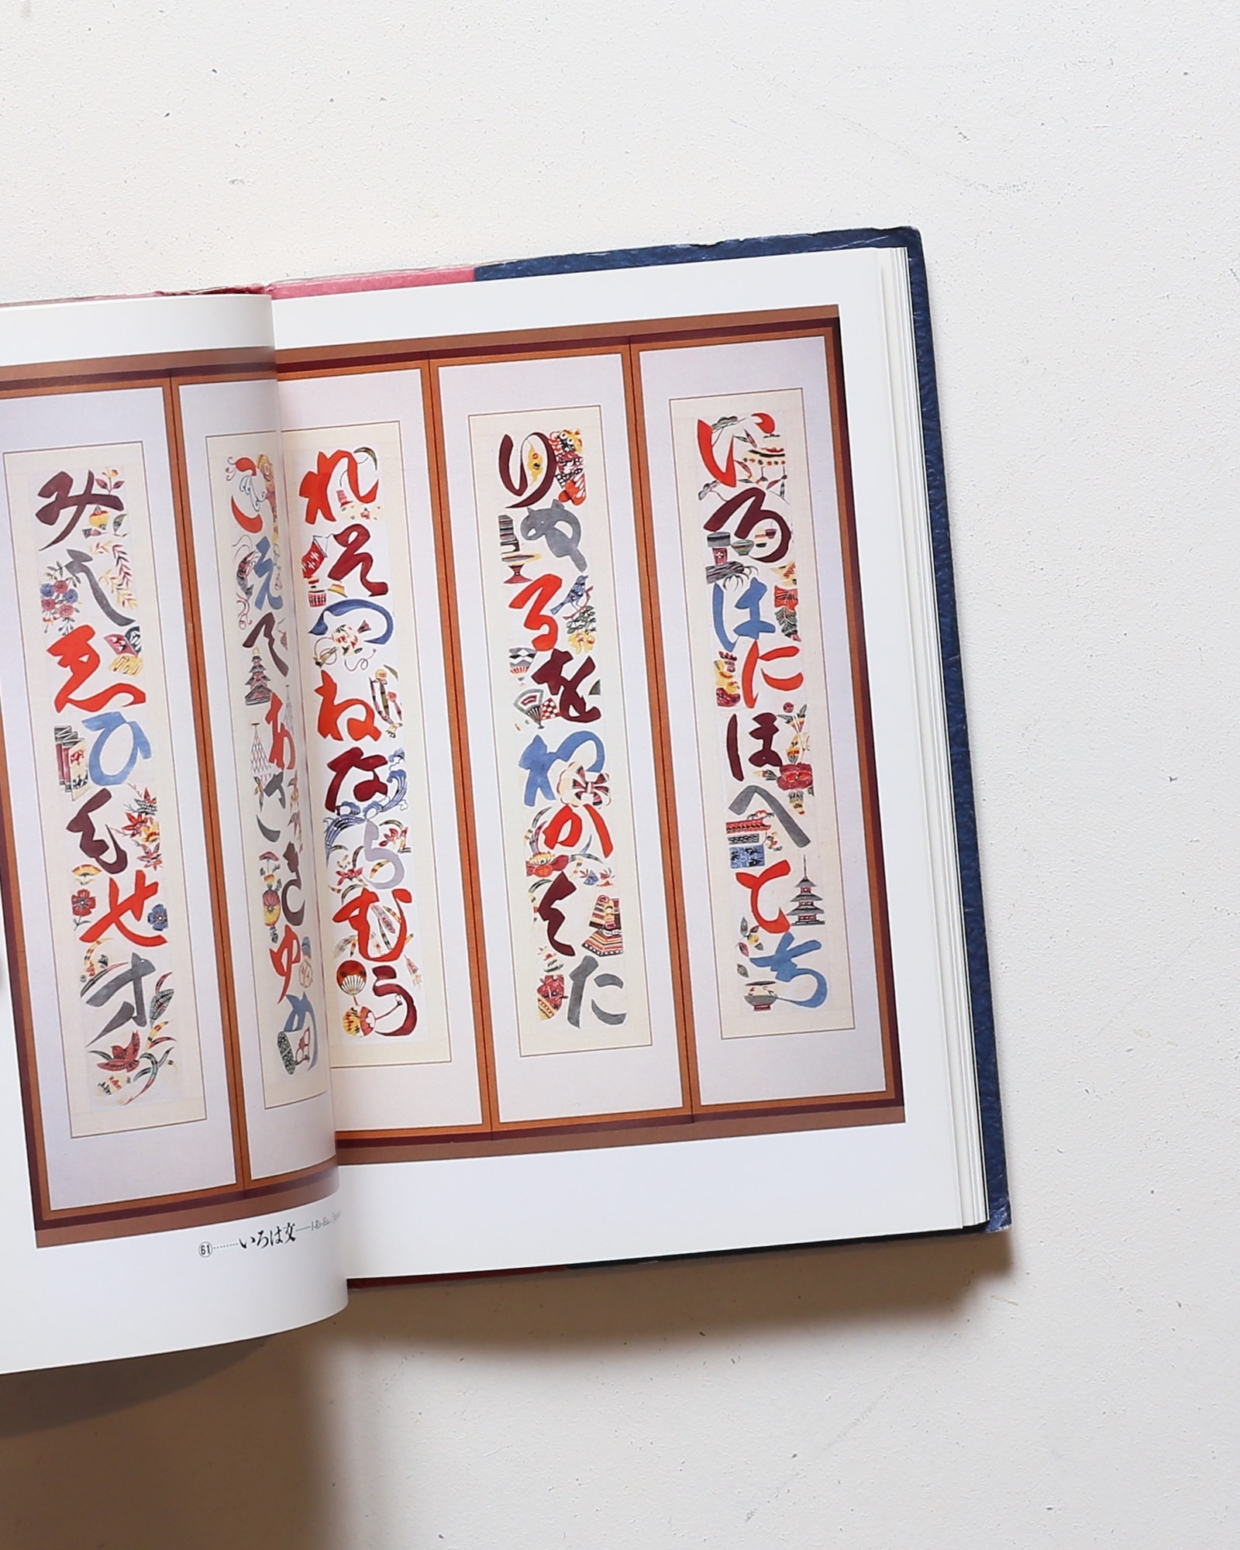 いろはにほへとち
りぬるをわかよた
れそつねならむう
こえてあさきゆめ
みしゑひもせす
㉑……いろは文